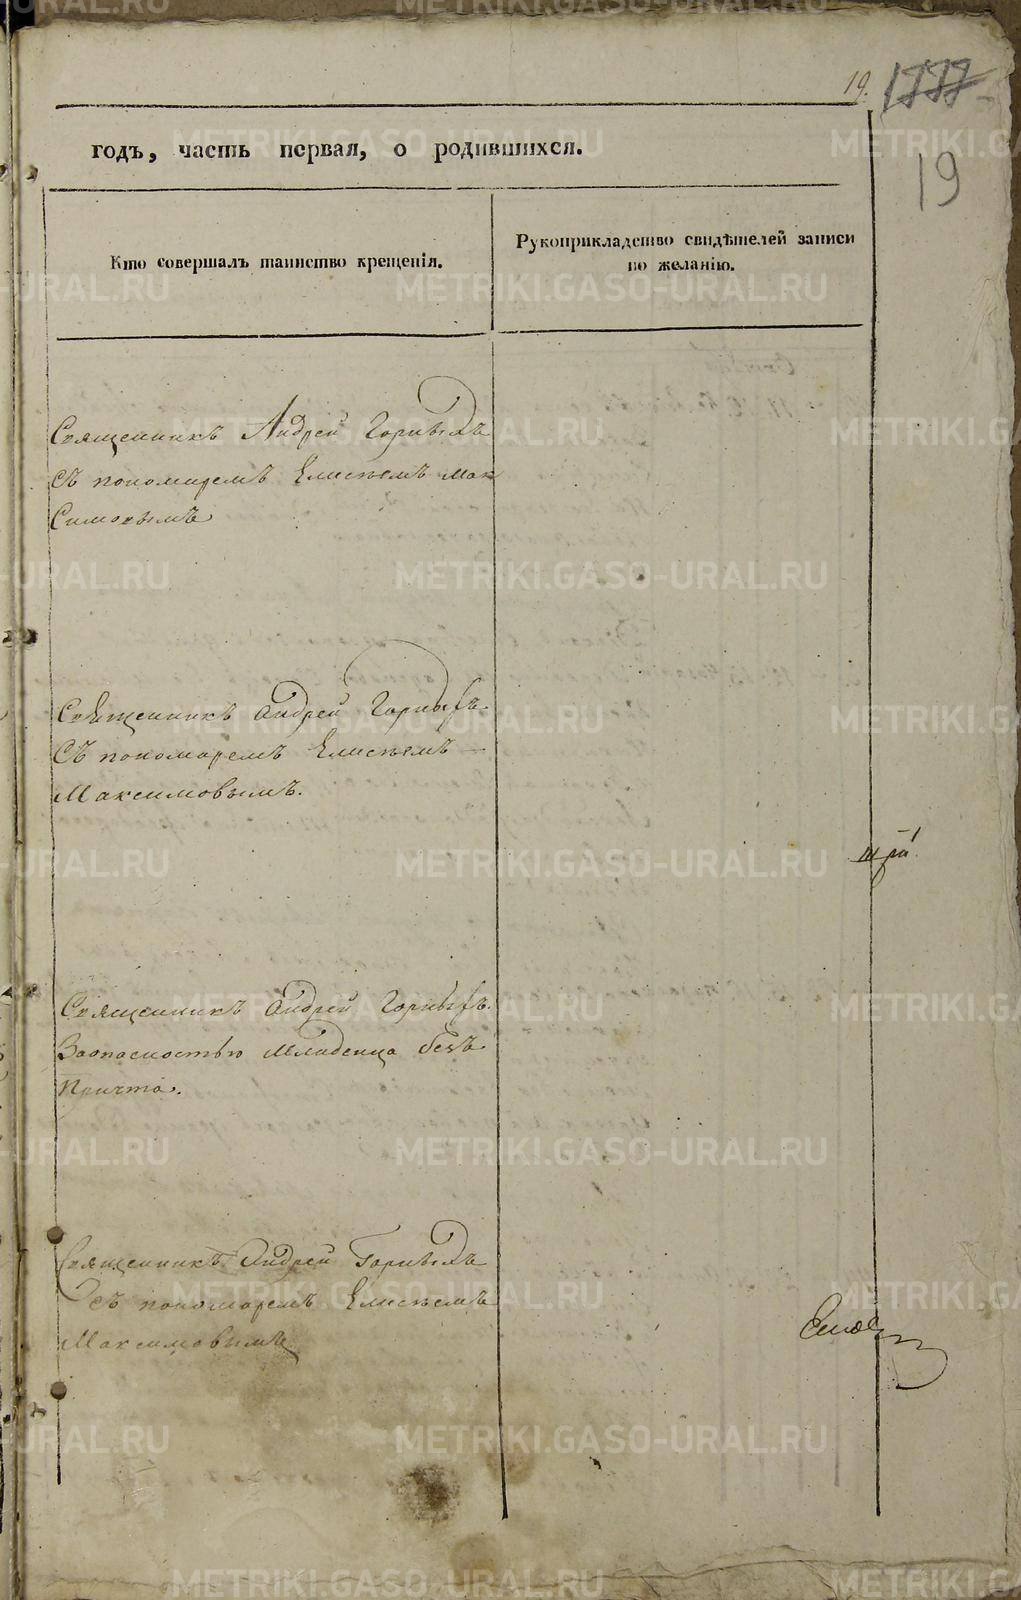 19.
19
годъ, часть первая, о родившихся.
Кто совершалъ таинство крещенія.
Рукоприкладство свидѣтелей записи
по желанію.
Священникъ Андрей Горныхъ
съ пономаремъ Елисѣемъ Мак
симовымъ
Священникъ Андрей Горныхъ
Съ пономаремъ Елисѣемъ —
Максимовымъ.
Священникъ Андрей Горныхъ.
Заопасностью Младенца безъ
Причта.
Священникъ Андрей Горныхъ
съ пономаремъ Елисѣемъ
Максимовымъ
METRIKI.GASO-URAL.RU